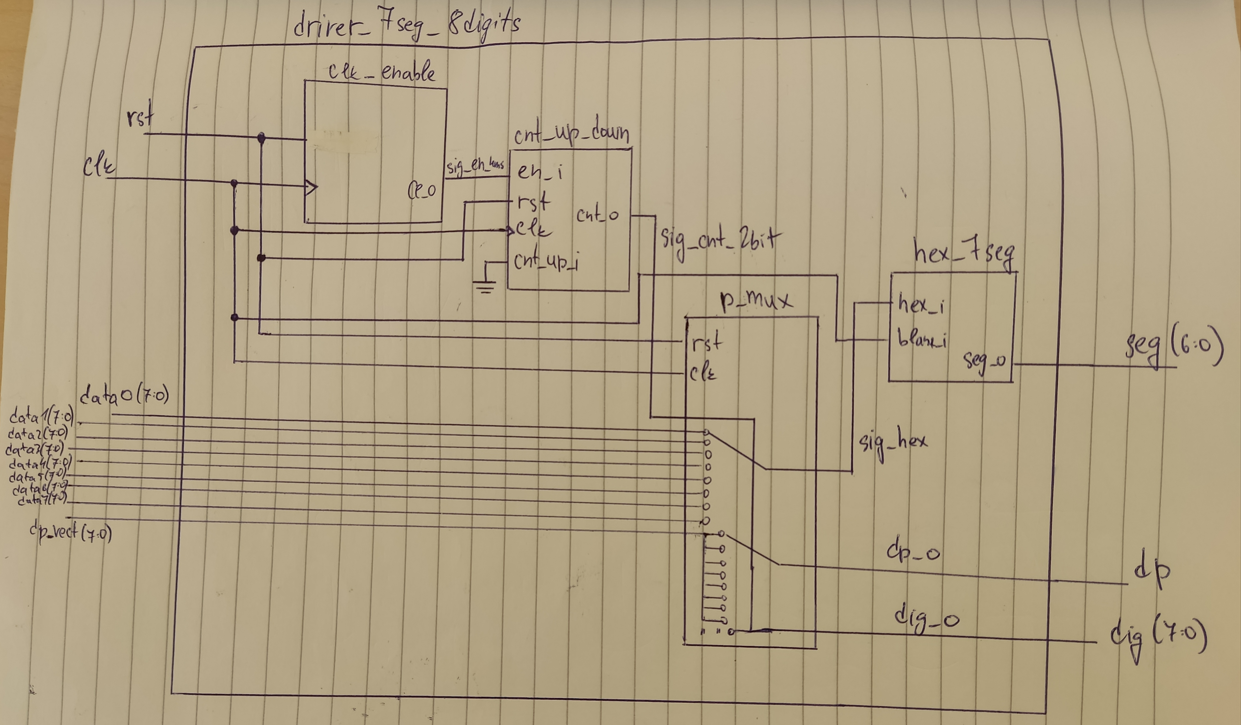 driver_7seg_8digits
clk_enable
rst
clk
ce_o
cnt_up_down
en_i
rst
clk
cnt_up_i
cnt_o
sig_cnt_2bit
hex_7seg
hex_i
blank_i
seg_o
seg(6:0)
p_mux
rst
clk
data0(7:0)
data1(7:0)
data2(7:0)
data3(7:0)
data4(7:0)
data5(7:0)
data6(7:0)
data7(7:0)
dp_vect(7:0)
sig_hex
dp_o
dp
dig_o
dig(7:0)